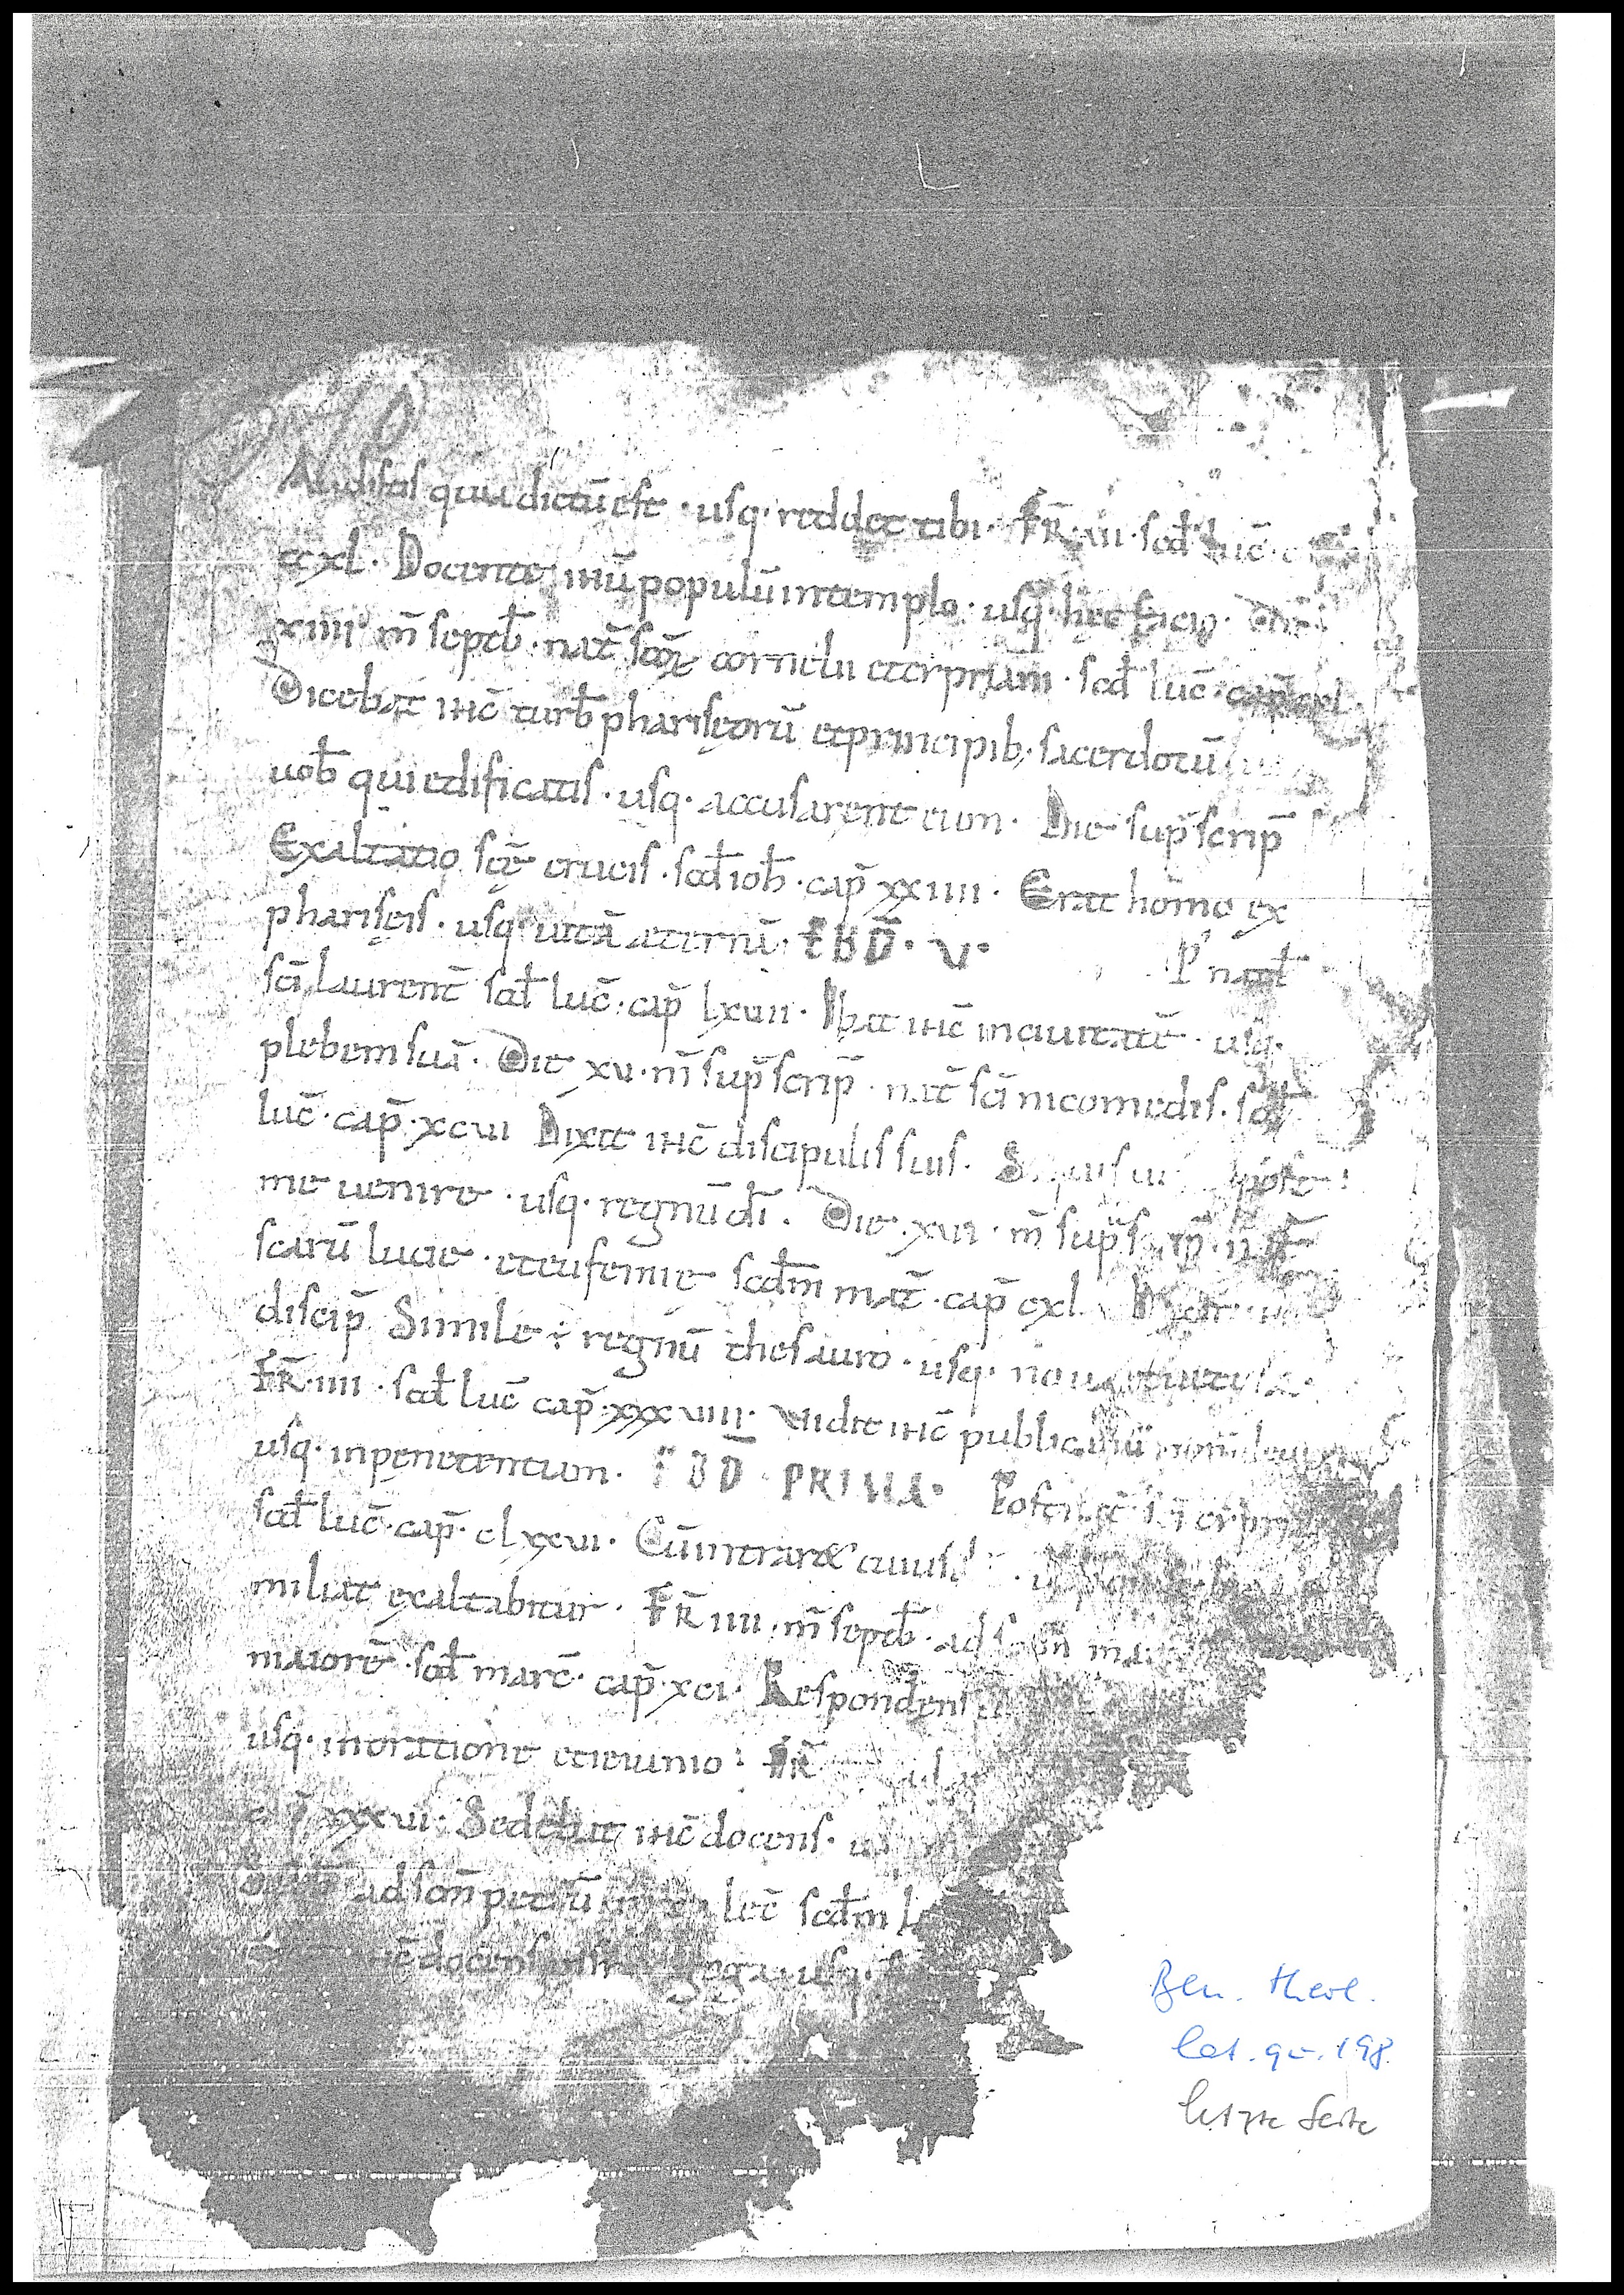 Audistis quia dictū est · usq · reddet tibi · FR̄ · vii · scd̄ Luc̄ ·
ccxl · Docente ihū populū in templo · usq̄ · hec facio ·
xiiii m̄ septb̄ · nat̄ scōꝝ cornelii et cypriani · scd̄ luc̄ · cap̄ ccxl
Dicebat ihc̄ turb̄ phariseorū et principib; sacerdotū
uob̄ qui edificatis · usq · accusarent eum · Die sup̄scrip̄
Exaltatio scę̄ crucis · scd̄ ioh̄ · cap̄ xxiiii · Erat homo ex
phariseis · usq · uitā aeternā · EBD̄ · V · P' natl̄
scī Laurent̄ scd̄ luc̄ · cap̄ lxvii · Ibat ihc̄ in ciuitatē · usq ·
plebem suā · Die xv · m̄ sup̄scrip̄ · nat̄ scī nicomedis · scd̄
luc̄ · cap̄ · xcvi Dixit ihc̄ discipulis suis · Si quis uult post
me uenire · usq · regnū dī · Die · xvi · m̄ sup̄scrip̄ · nat̄
scarū lucie · et eufemie scdm̄ mat̄ · cap̄ cxl
discip̄ Simile ÷ regnū thesauro · usq · noua et uetera ·
FR̄ · iiii · scd̄ luc̄ cap̄ · xxxviiii · Vidit ihc̄ publicanū nom̄ leui
usq · in penetentiam · EBD̄ · PRIMA · Post nat̄ scī cyp
scd̄ luc̄ · cap̄ · clxxvi · Cū intraret cuiusd
miliat exaltabitur · FR̄ iiii · m̄ septb̄ · ad scām̄ ma
maiorē · scd̄ marc̄ · cap̄ · xci · Respondens
usq · in oratione et ieiunio : FR̄
cap̄ xxxvi · Sedebat ihc̄ docens ·
ad scm̄ petrū lec̄ scdm̄ L
ihc̄ docens usq ·
Bln. theol.
lat. qu. 198.
letzte Seite